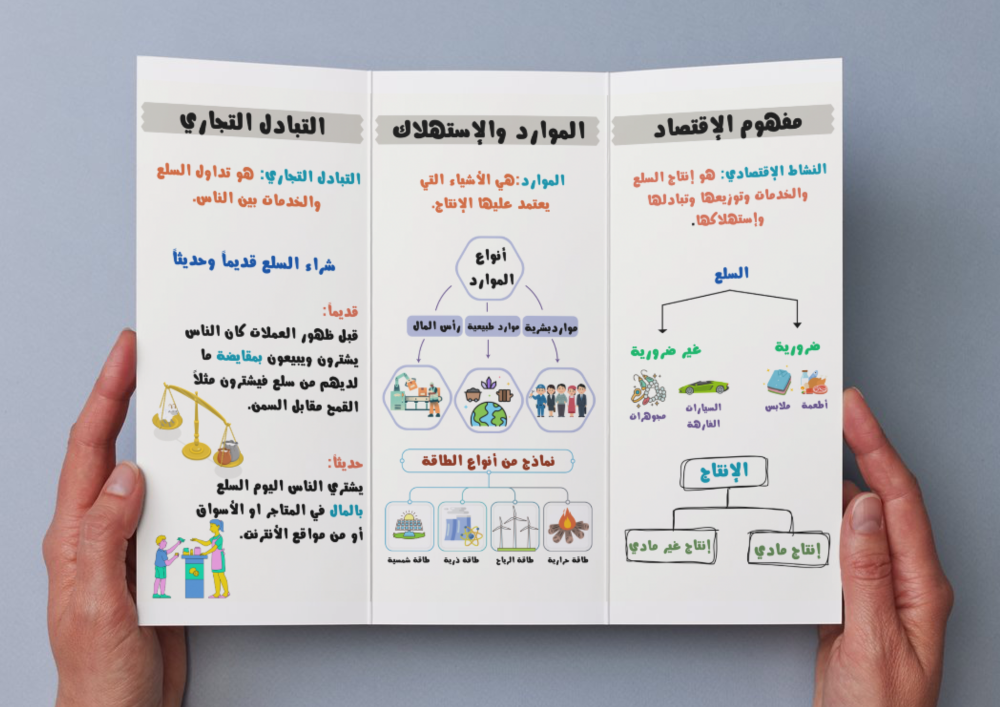 مفهوم الإقتصاد
النشاط الإقتصادي: هو إنتاج السلع
والخدمات وتوزيعها وتبادلها
وإستهلاكها.
السلع
ضرورية
غير ضرورية
أطعمة
ملابس
السيارات
الفارهة
مجوهرات
الإنتاج
إنتاج مادي
إنتاج غير مادي
الموارد والإستهلاك
الموارد:هي الأشياء التي
يعتمد عليها الإنتاج.
أنواع
الموارد
موارد بشرية
موارد طبيعية
رأس المال
نماذج من أنواع الطاقة
طاقة حرارية
طاقة الرياح
طاقة ذرية
طاقة شمسية
التبادل التجاري
التبادل التجاري: هو تداول السلع
والخدمات بين الناس.
شراء السلع قديماً وحديثاً
قديماً:
قبل ظهور العملات كان الناس
يشترون ويبيعون بمقايضة ما
لديهم من سلع فيشترون مثلاً
القمح مقابل السمن.
حديثاً:
يشتري الناس اليوم السلع
بالمال في المتاجر او الأسواق
أو من مواقع الأنترنت.